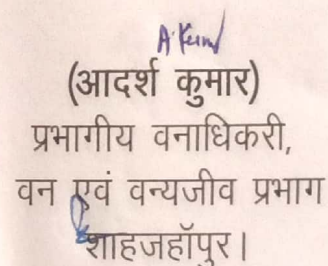 (आदर्श कुमार)
प्रभागीय वनाधिकरी,
वन एवं वन्यजीव प्रभाग
शाहजहॉपुर।